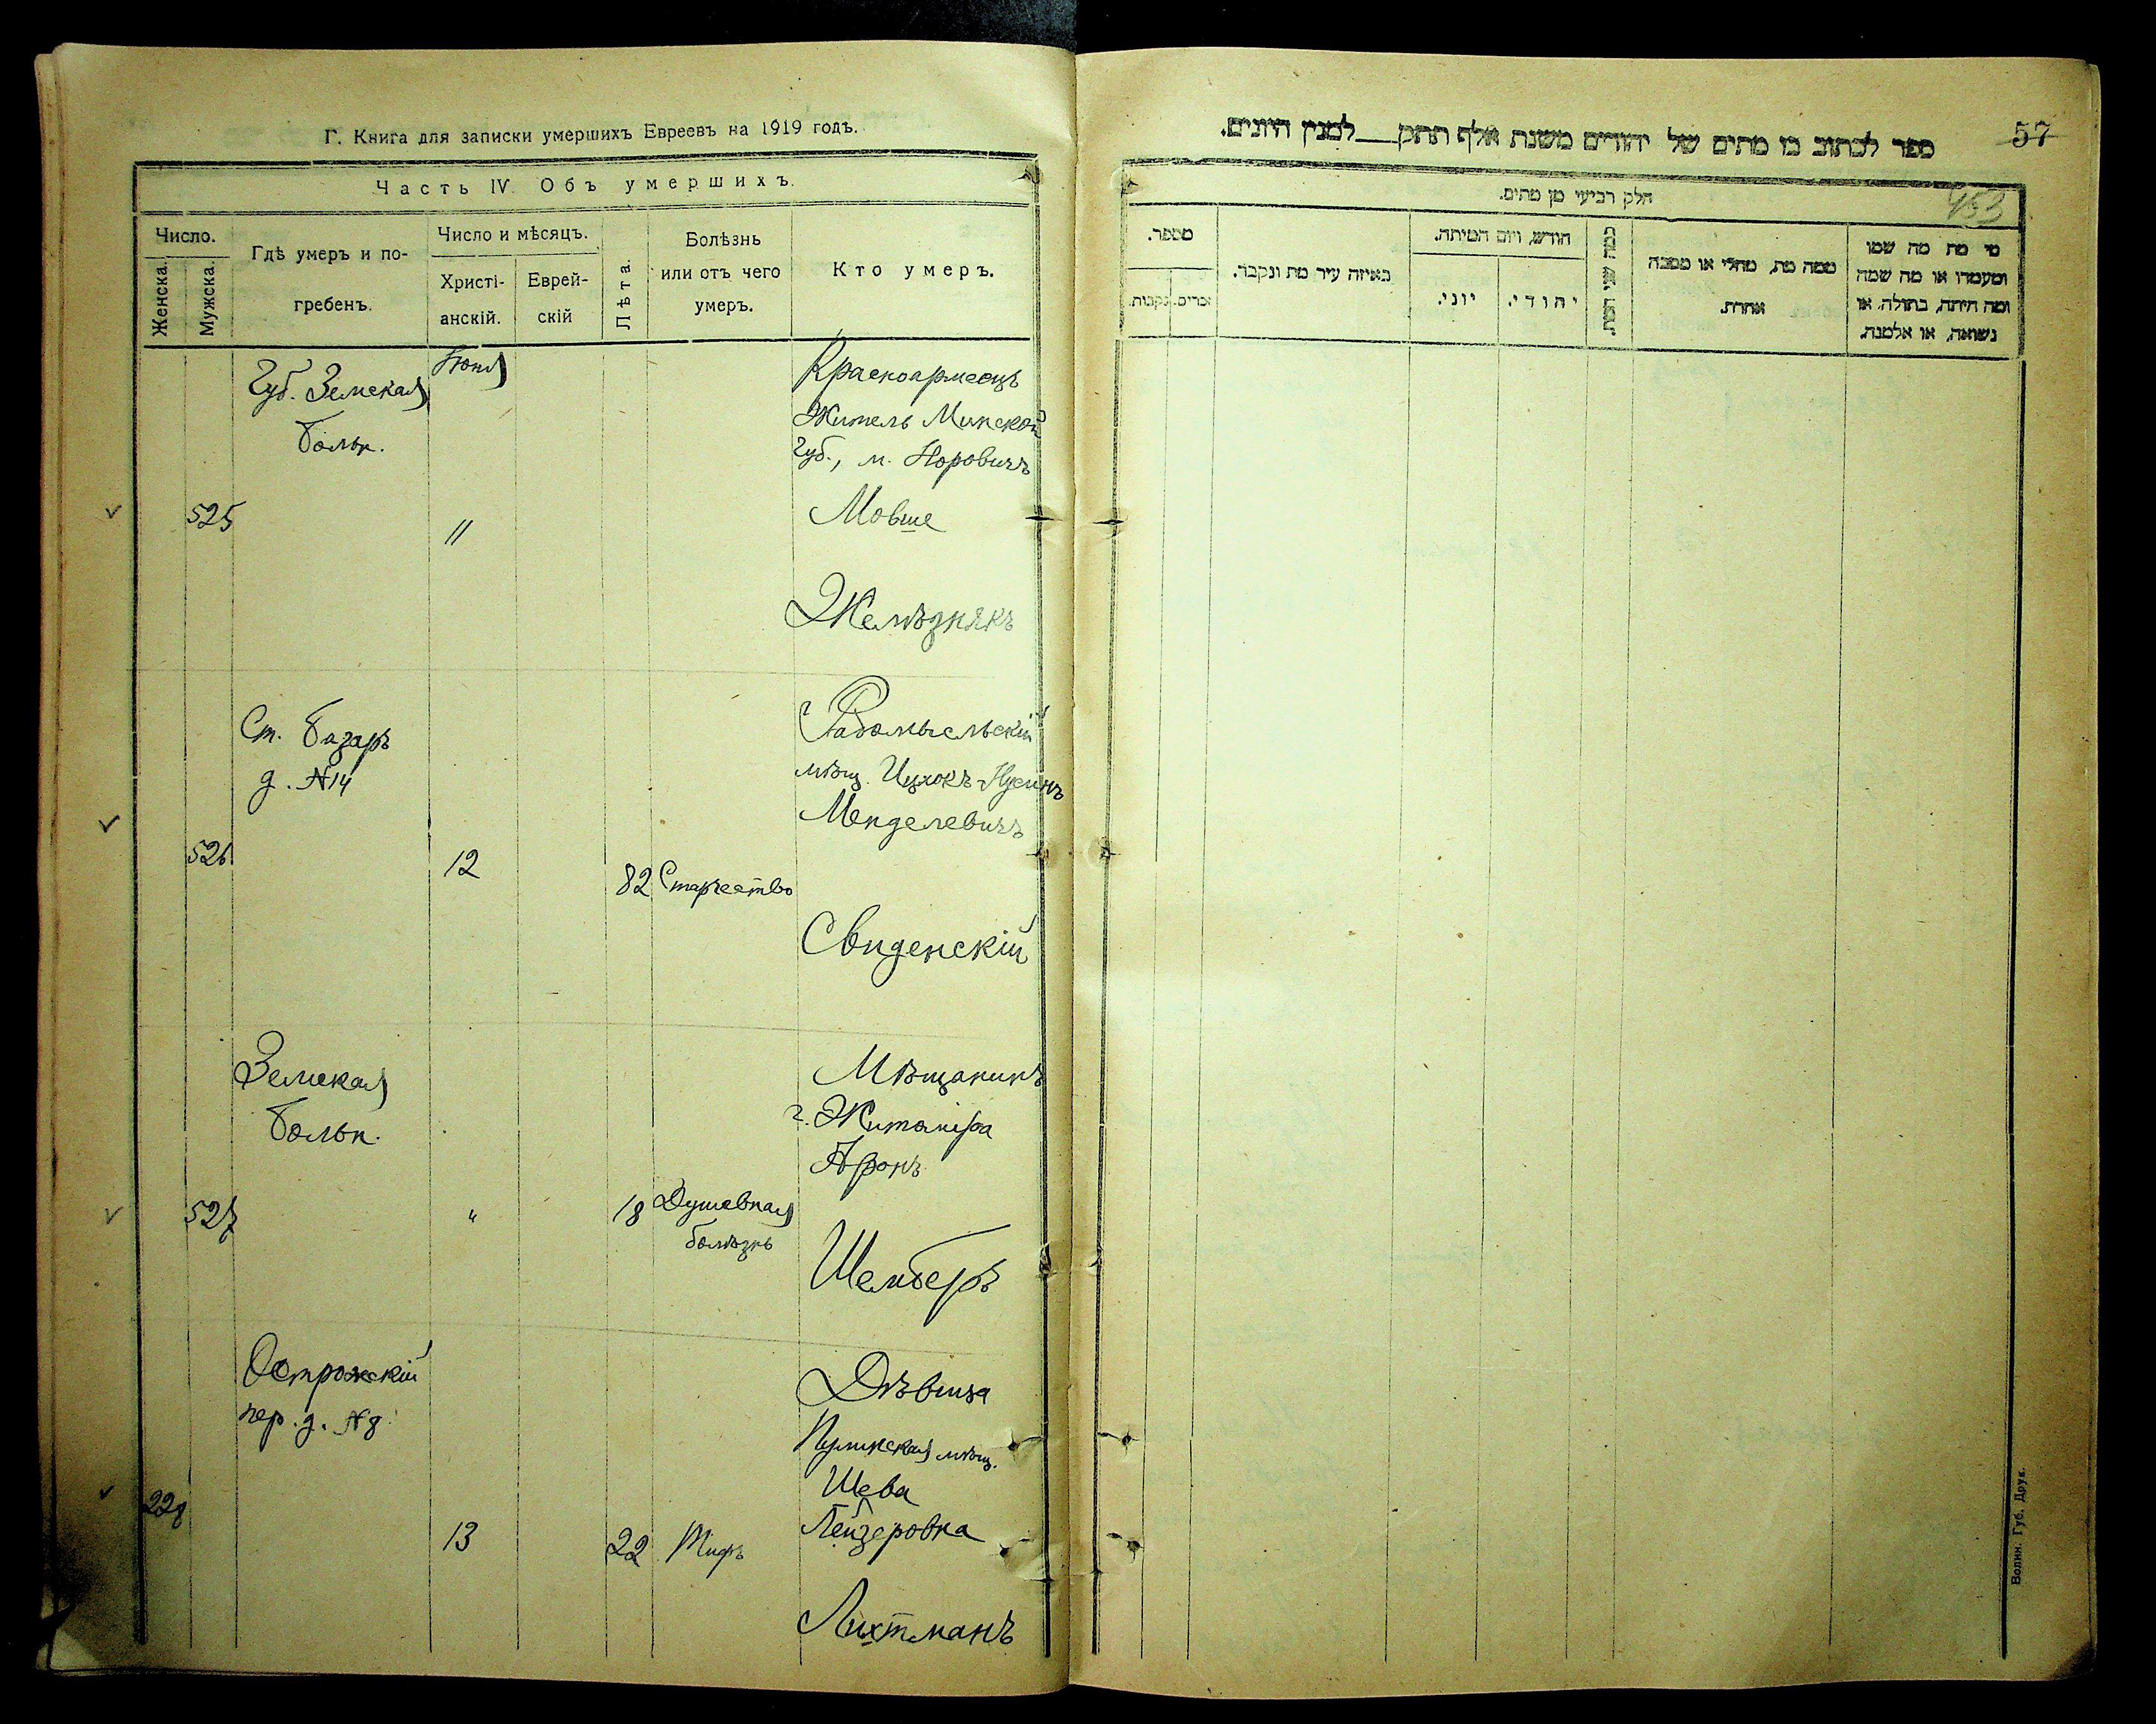 Г. Книга для записки умершихъ Евреевъ на 1919 годъ.
Часть IV. Объ умершихъ.
Число.
Женска.
Мужска.
Гдѣ умеръ и по-
гребенъ.
Число и мѣсяцъ.
Христі-
анскій.
Еврей-
скій
Лѣта.
Болѣзнь
или отъ чего
умеръ.
Кто умеръ.
Губ. Земская
больн.
525
Юнія
11
Красноармеецъ
Житель Минской
Губ., м. Норовичъ
Мовше
Желѣзнякъ
Ст. базаръ
д. №14
526
12
82
Старчество
Радомысльскій
мѣщ. Ицхокъ-Нусинъ
Менделевичъ
Свиденскій
Земская
больн.
527
"
18
Душевная
болѣзнь
Мѣщанинъ
г. Житоміра
Аронъ
Шемберъ
Острожскій
пер. д. №8
228
13
22
Тифъ
Дѣвица
Пулинская мѣщ.
Шева
Лейзеровна
Лихтманъ
57
ספר לכתוב בו מתים של יהודים משנת אלף תתק__למנין היונים.
453
חלק רביעי מן מתים.
מספר.
זכרים.
נקבות.
באיזה עיר מת ונקבר.
חודש, ויום המיתה.
יוני.
יהודי.
כמה שני המת.
ממה מת, מחלי או מסבה
אחרת.
מי מת מה שמו
ומעמדו או מה שמה
ומה היתה, בתולה, או
נשואה, או אלמנה.
Волин. Губ. Друк.